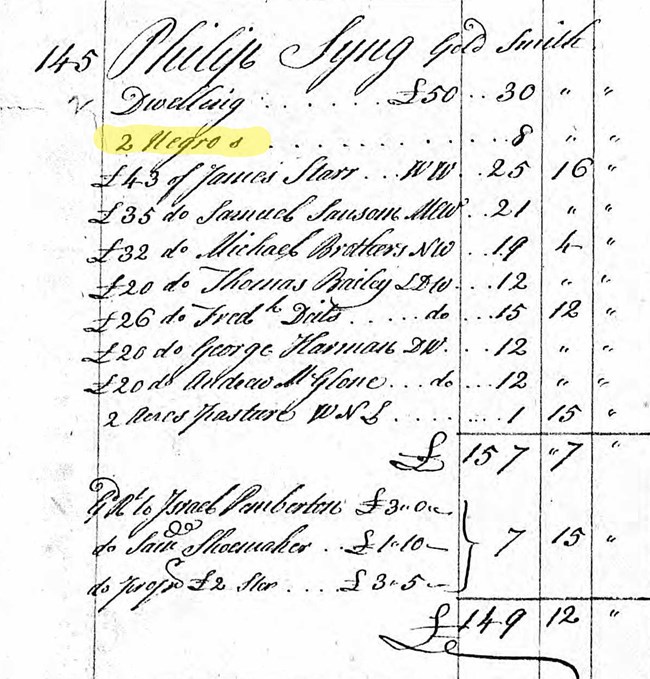 145 Philip Syng Gold Smith
Dwelling . . . . . . £50 . . 30 " "
2 Negros . . . . . . . . . . . . 8 " "
£43 of James Starr . . . WW . . 25 16 "
£35 do Samuel Sansom MW . . 21 " "
£32 do Michael Brothers NW . . 19 4 "
£20 do Thomas Bailey LDW . . . 12 " "
£26 do Fredk Deits . . . . . do . . . 15 12 "
£20 do George Harman DW. . . . 12 " "
£20 do Andrew McGlone . . . do . . . 12 " "
2 Acres Pasture W N L . . . . . . . . . 1 15 "
£ 157 " 7 "
Gd Rt to Israel Pemberton £3 " 0 "
do Saml Shoemaker . . £1 " 10 7 15 "
do propr £2 Ster . . . . £3 " 5
£ 149 12 "